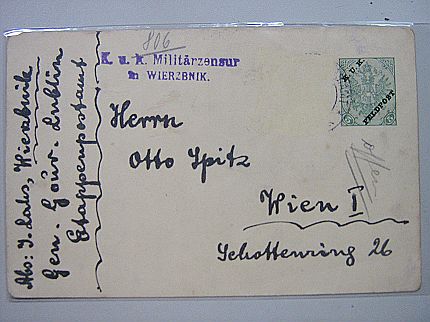 806
K. u. k. Militärzensur
in WIERZBNIK.
K.U.K.
FELDPOST
5
Herrn
Otto Spitz
Wien I
Schottenring 26
Abs: J. Lats, Wierzbnik
Gen. Gouv. Lublin
Etappenpostamt